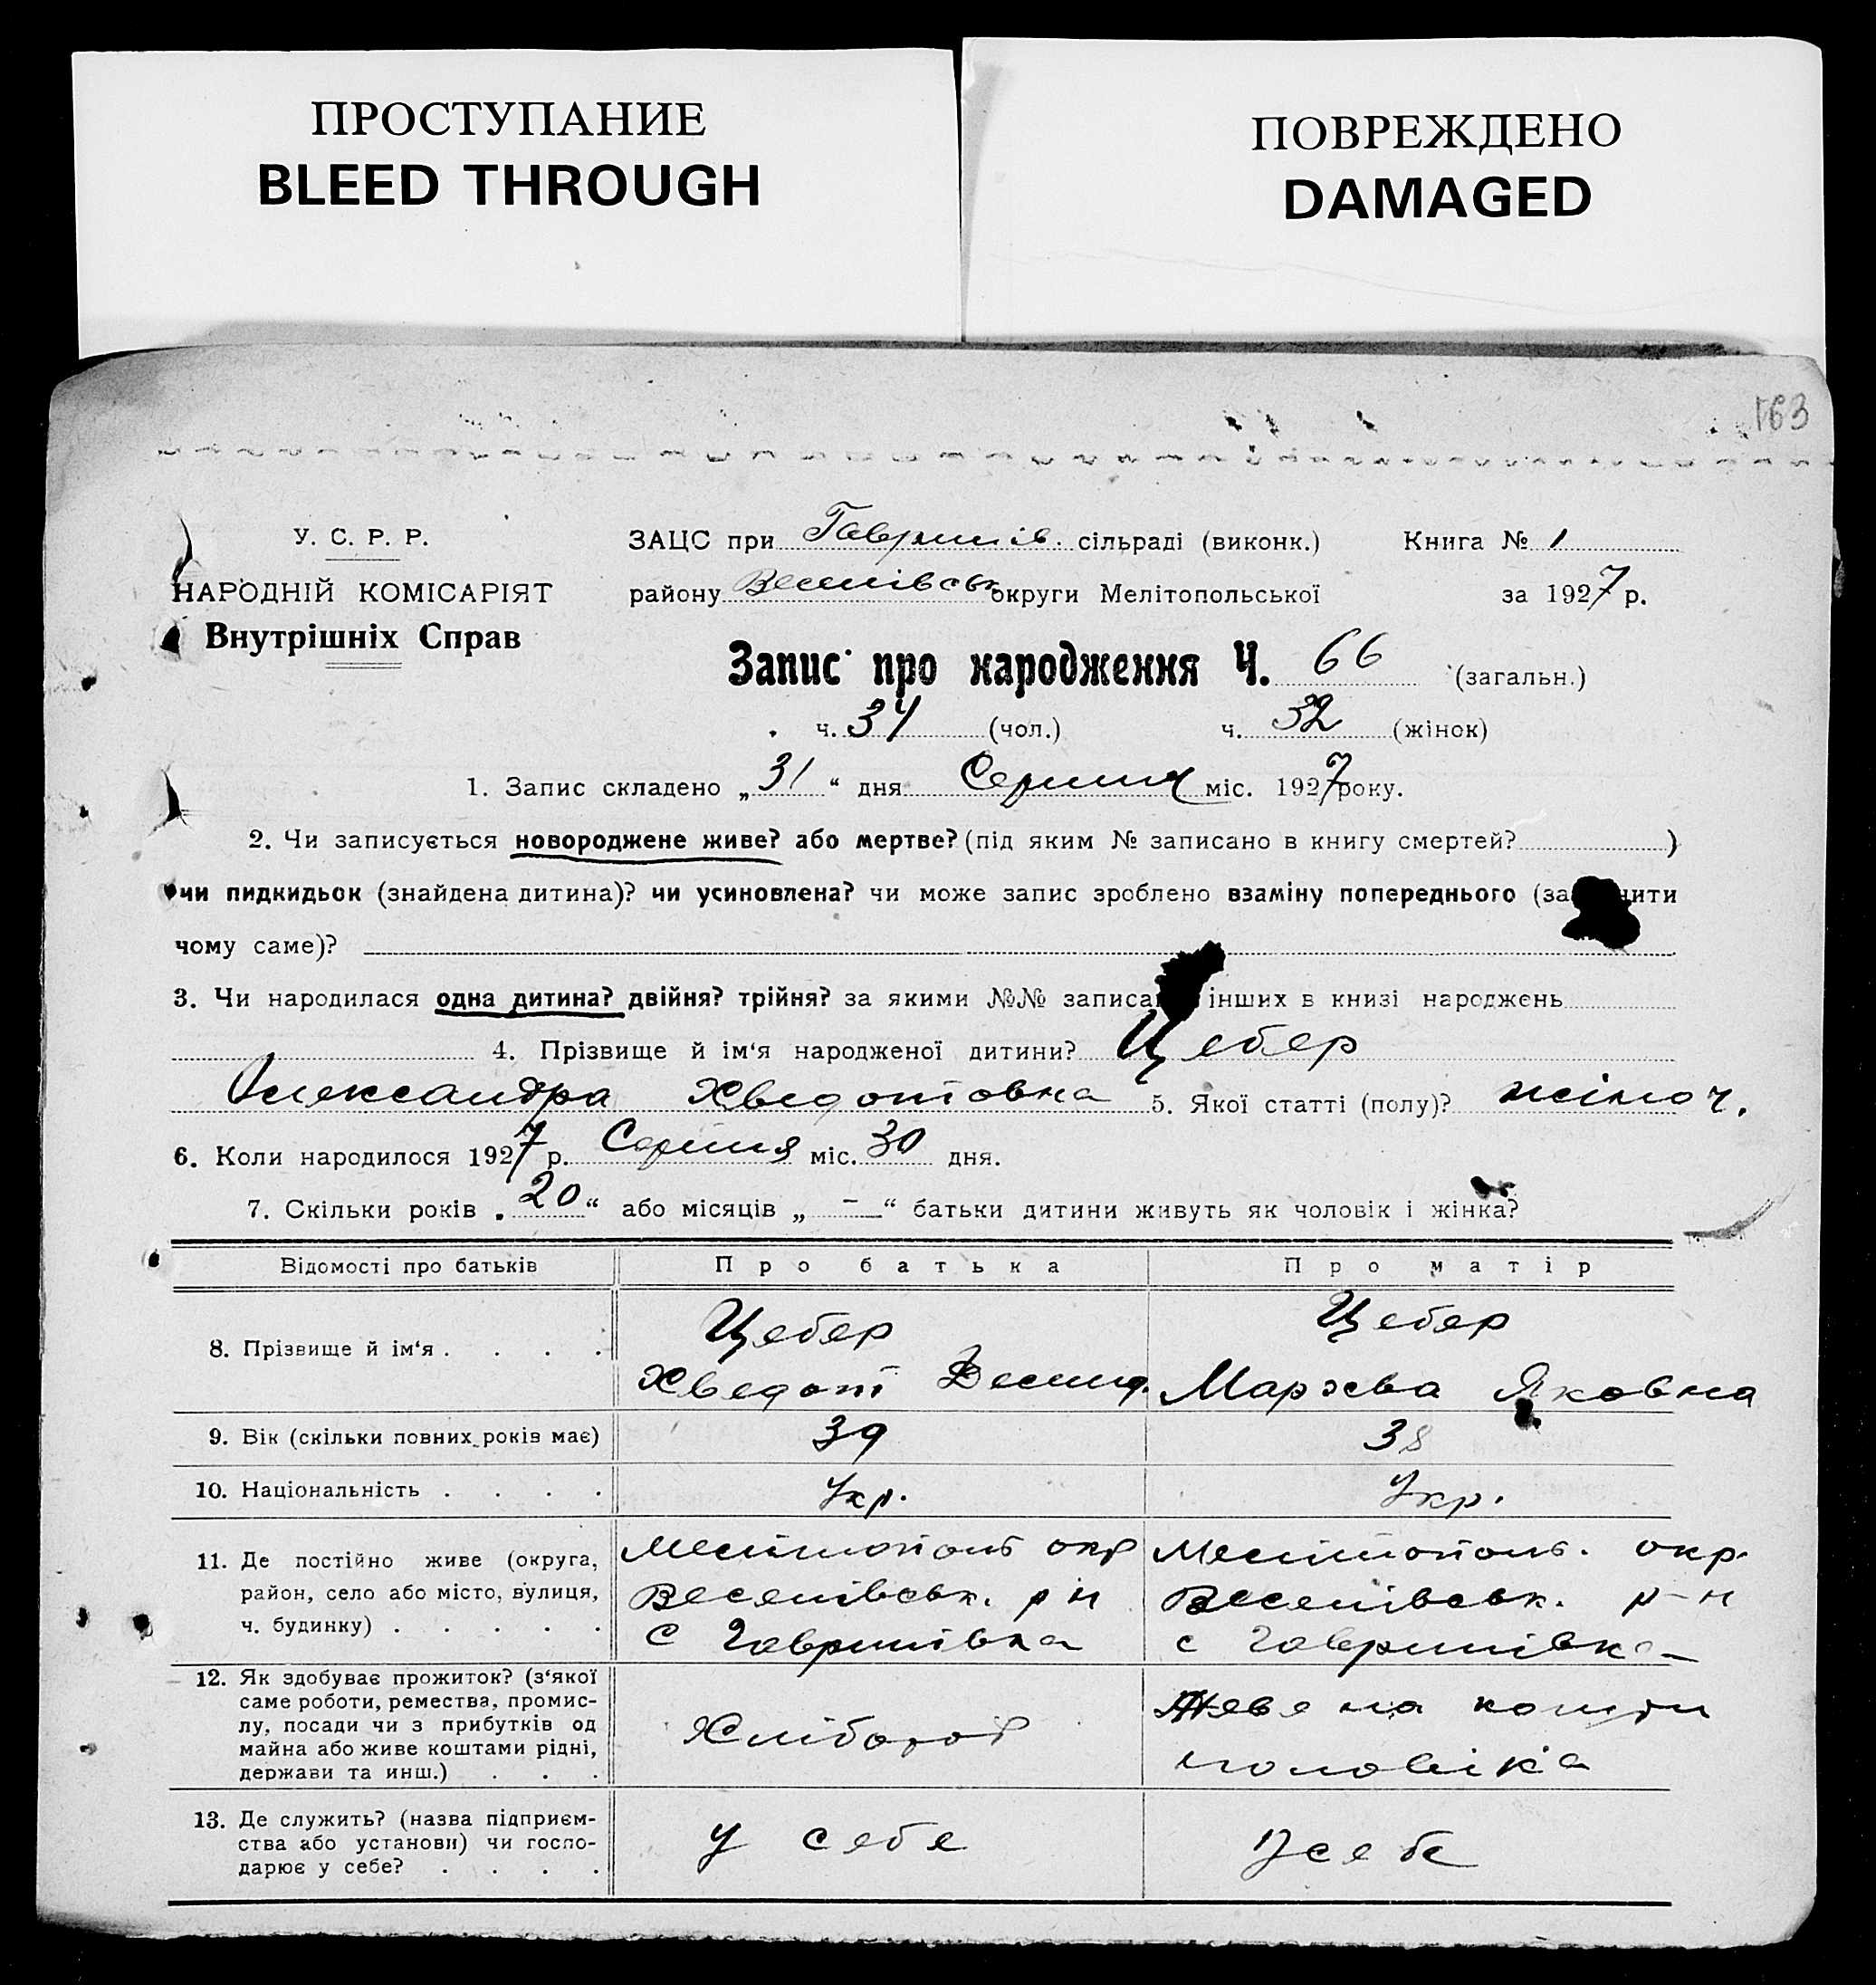 ПРОСТУПАНИЕ
BLEED THROUGH
ПОВРЕЖДЕНО
DAMAGED
163
У. С. Р. Р.
НАРОДНІЙ КОМІСАРІЯТ
Внутрішніх Справ
ЗАЦС при Гаврилів. сільраді (виконк.) Книга № 1
району Веселівськ округи Мелітопольської за 1927 р.
Запис про народження Ч. 66 (загальн.)
ч. 34 (чол.) ч. 32 (жінок)
1. Запис складено „31“ дня Серпня міс. 1927 року.
2. Чи записується новороджене живе? або мертве? (під яким № записано в книгу смертей? )
чи пидкидьок (знайдена дитина)? чи усиновлена? чи може запис зроблено взаміну попереднього (за нити
чому саме)?
3. Чи народилася одна дитина? двійня? трійня? за якими №№ записа інших в книзі народжень
4. Прізвище й ім‘я народженої дитини? Цебер
Александра Хведотовна 5. Якої статті (полу)? жіноч.
6. Коли народилося 1927 р. Серпня міс. 30 дня.
7. Скільки років „20“ або місяців „ – “ батьки дитини живуть як чоловік і жінка?
Відомості про батьків Про батька Про матір
8. Прізвище й ім‘я . . . . Цебер Хведот Цебер Яковна
9. Вік (скільки повних років має) 39 38
10. Національність . . . . Укр. Укр.
11. Де постійно живе (округа, Мелітополь окр Мелітополь. окр.
район, село або місто, вулиця, Веселівськ. рн Веселівськ. р-н
ч. будинку) . . . . . с Гаврилівка с Гаврилівка
12. Як здобуває прожиток? (з‘якої
саме роботи, ремества, промис-
лу, посади чи з прибутків од
майна або живе коштами рідні,
держави та инш.) . . . Хлібороб Живе на кошти чоловіка
13. Де служить? (назва підприєм-
ства або установи) чи госпо-
дарює у себе? . . . . У себе У себе